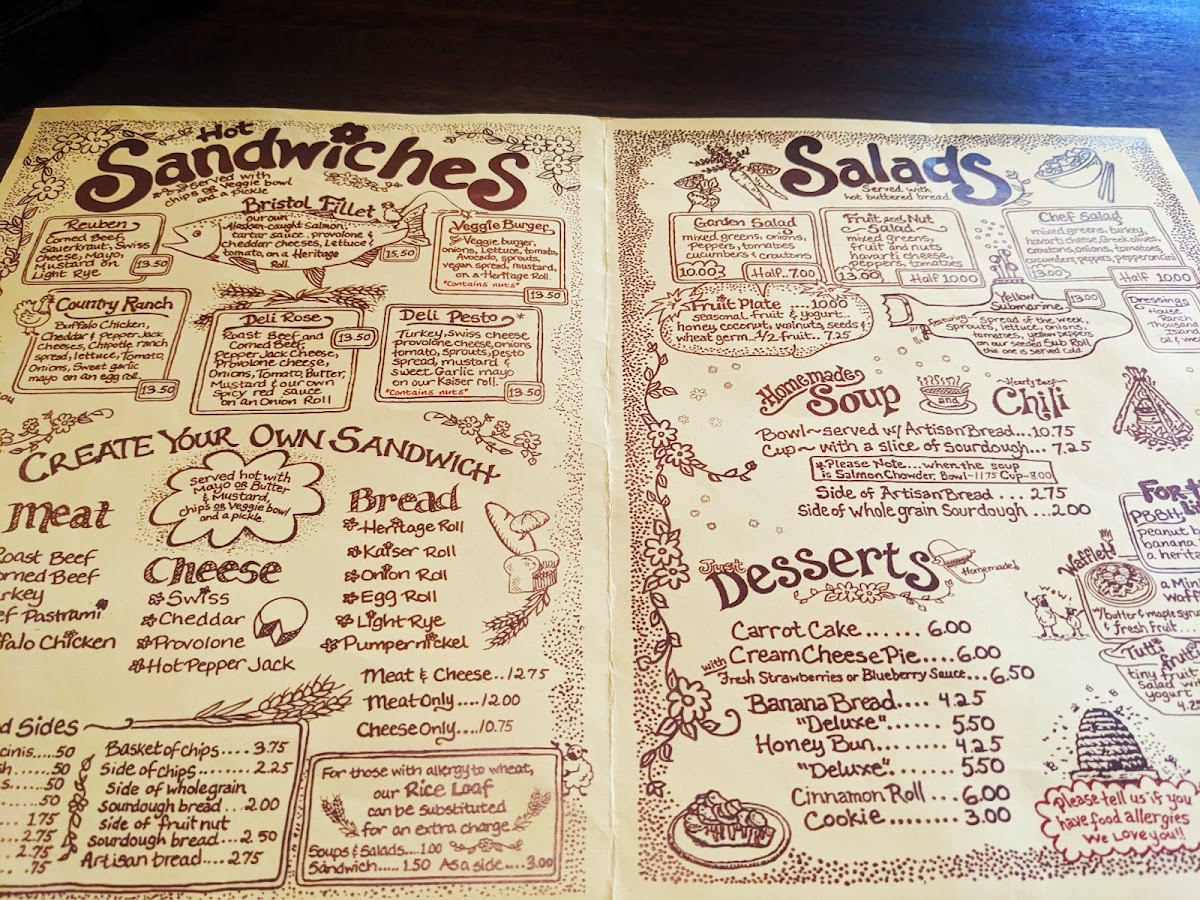 Hot
Sandwiches
served with
chips or Veggie bowl
and a pickle
Reuben
Corned Beef,
Sauerkraut, Swiss
cheese, Mayo,
Mustard on
Light Rye
13.50
Bristol Fillet
our own
Alaskan-caught Salmon,
tartar sauce, provolone &
cheddar cheeses, Lettuce &
tomato, on a Heritage
Roll.
15.50
Veggie Burger
Veggie burger,
onions, Lettuce, tomato,
Avocado, sprouts,
vegan spread, mustard,
on a Heritage Roll.
*Contains nuts*
13.50
Country Ranch
Buffalo Chicken,
Cheddar & Pepper Jack
Cheeses, Chipotle ranch
spread, lettuce, Tomato,
Onions, Sweet garlic
mayo on an egg roll.
13.50
Deli Rose
Roast Beef and
Corned Beef,
Pepper Jack Cheese,
Provolone Cheese
Onions, Tomato, Butter,
Mustard & our own
Spicy red sauce
on an Onion Roll
13.50
Deli Pesto*
Turkey, Swiss cheese
provolone cheese, onions
tomato, sprouts, pesto
spread, mustard &
sweet Garlic mayo
on our Kaiser roll.
*Contains nuts*
13.50
Create Your Own Sandwich
served hot with
Mayo or Butter
& Mustard,
chips or Veggie bowl
and a pickle.
Meat
Roast Beef
Corned Beef
Turkey
Beef Pastrami
Buffalo Chicken
Cheese
Swiss
Cheddar
Provolone
Hot Pepper Jack
Bread
Heritage Roll
Kaiser Roll
Onion Roll
Egg Roll
Light Rye
Pumpernickel
Meat & Cheese..12.75
Meat Only....12.00
Cheese Only....10.75
Sides
.50
.50
.50
.50
1.75
2.75
2.75
.75
Basket of chips....3.75
Side of chips........2.25
Side of whole grain
sourdough bread...2.00
side of fruit nut
sourdough bread...2.50
Artisan bread....2.75
For those with allergy to wheat,
our Rice Loaf
can be substituted
for an extra charge
Soups & Salads....1.00
Sandwich.....1.50 As a side....3.00
Salads
Served with
hot buttered bread.
Garden Salad
mixed greens, onions,
Peppers, tomatoes
cucumbers & croutons
10.00
Half..7.00
Fruit and Nut
Salad
mixed greens
fruit and nuts
havarti cheese,
peppers, tomatoes
13.00
Half 10.00
Chef Salad
mixed greens, turkey,
havarti cheese, Greek olives,
croutons, onions, tomatoes
cucumbers, peppers, pepperoncini
13.00
Half 10.00
Fruit Plate ....10.00
seasonal fruit & yogurt..
honey, coconut, walnuts, seeds &
wheat germ...½ fruit..7.25
Yellow
Submarine
13.00
featuring
spread of the week,
sprouts, lettuce, onions,
tomatoes, yellow peppers,
on our seeded Sub Roll
this one is served cold.
Dressings
House
Ranch
Thousand
Island
Oil &
Homemade
Soup
and
Hearty Beef
Chili
Bowl~served w/ Artisan Bread...10.75
Cup~with a slice of sourdough... 7.25
*Please Note....when the soup
is Salmon Chowder, Bowl-11.75 Cup-8.00
Side of Artisan Bread ... 2.75
side of whole grain Sourdough ...2.00
PBBH
peanut b
banana
a herit
Waffle
a Mini
waff
w/butter & maple syr
& fresh fruit
Tutti
frutti
tiny fruit
Salad with
yogurt
4.25
Desserts
Homemade!
Carrot Cake....... 6.00
Cream Cheese Pie....6.00
with Fresh Strawberries or Blueberry Sauce...6.50
Banana Bread.... 4.25
"Deluxe"...... 5.50
Honey Bun........ 4.25
"Deluxe"....... 5.50
Cinnamon Roll ... 6.00
Cookie ......... 3.00
please tell us if you
have food allergies
We Love you!!